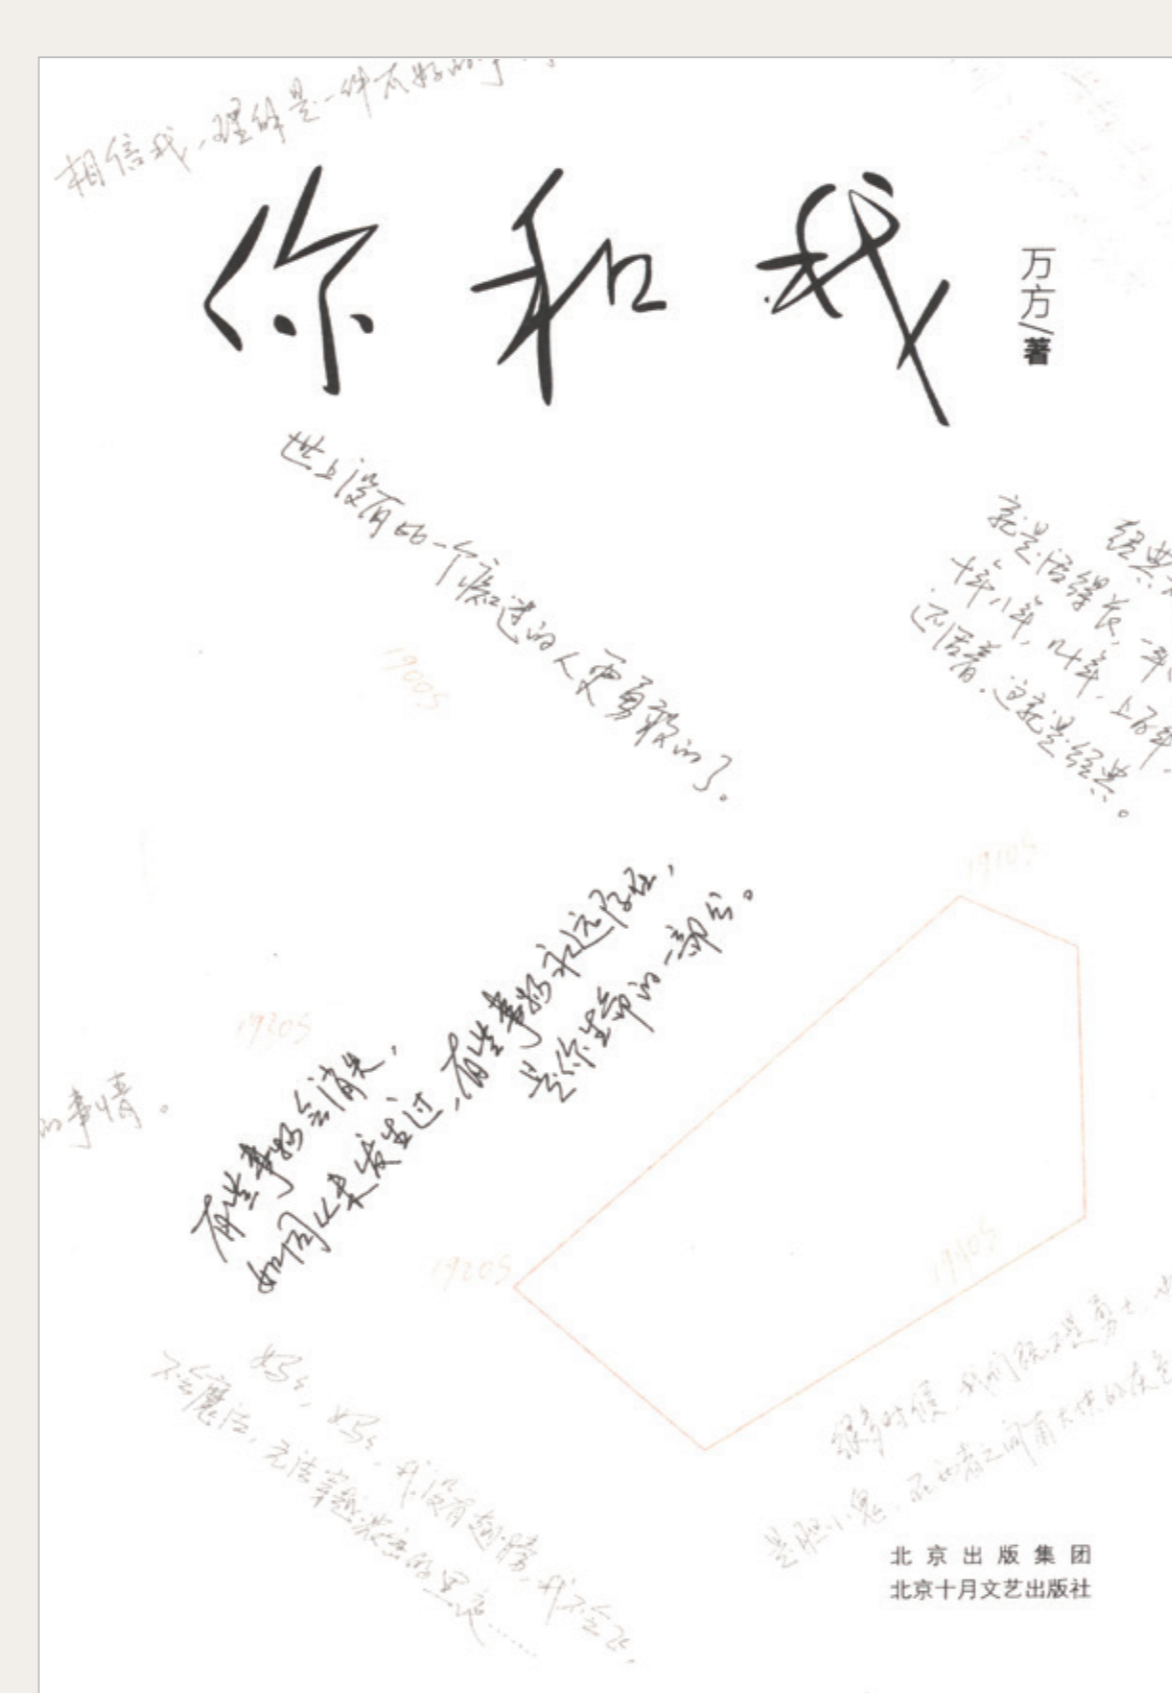 相信我，理解是一件太好的事
你和我
万方/著
世上没有比一个痴迷的人更勇敢的了。
经典
就是活得长，一年
十年八年，几十年，上百年
还活着。这就是经典。
1900S
1910S
有些事物会消失，
如同从未发生过，有些事物永远存在，
是你生命的一部分。
1930S
的事情。
1920S
1940S
妈妈，妈妈，我没有翅膀，我不会飞，
不会魔法，无法穿越浓密的黑夜……
很多时候，我们既不是勇士，也
是胆小鬼，在两者之间有大片的灰色
北京出版集团
北京十月文艺出版社